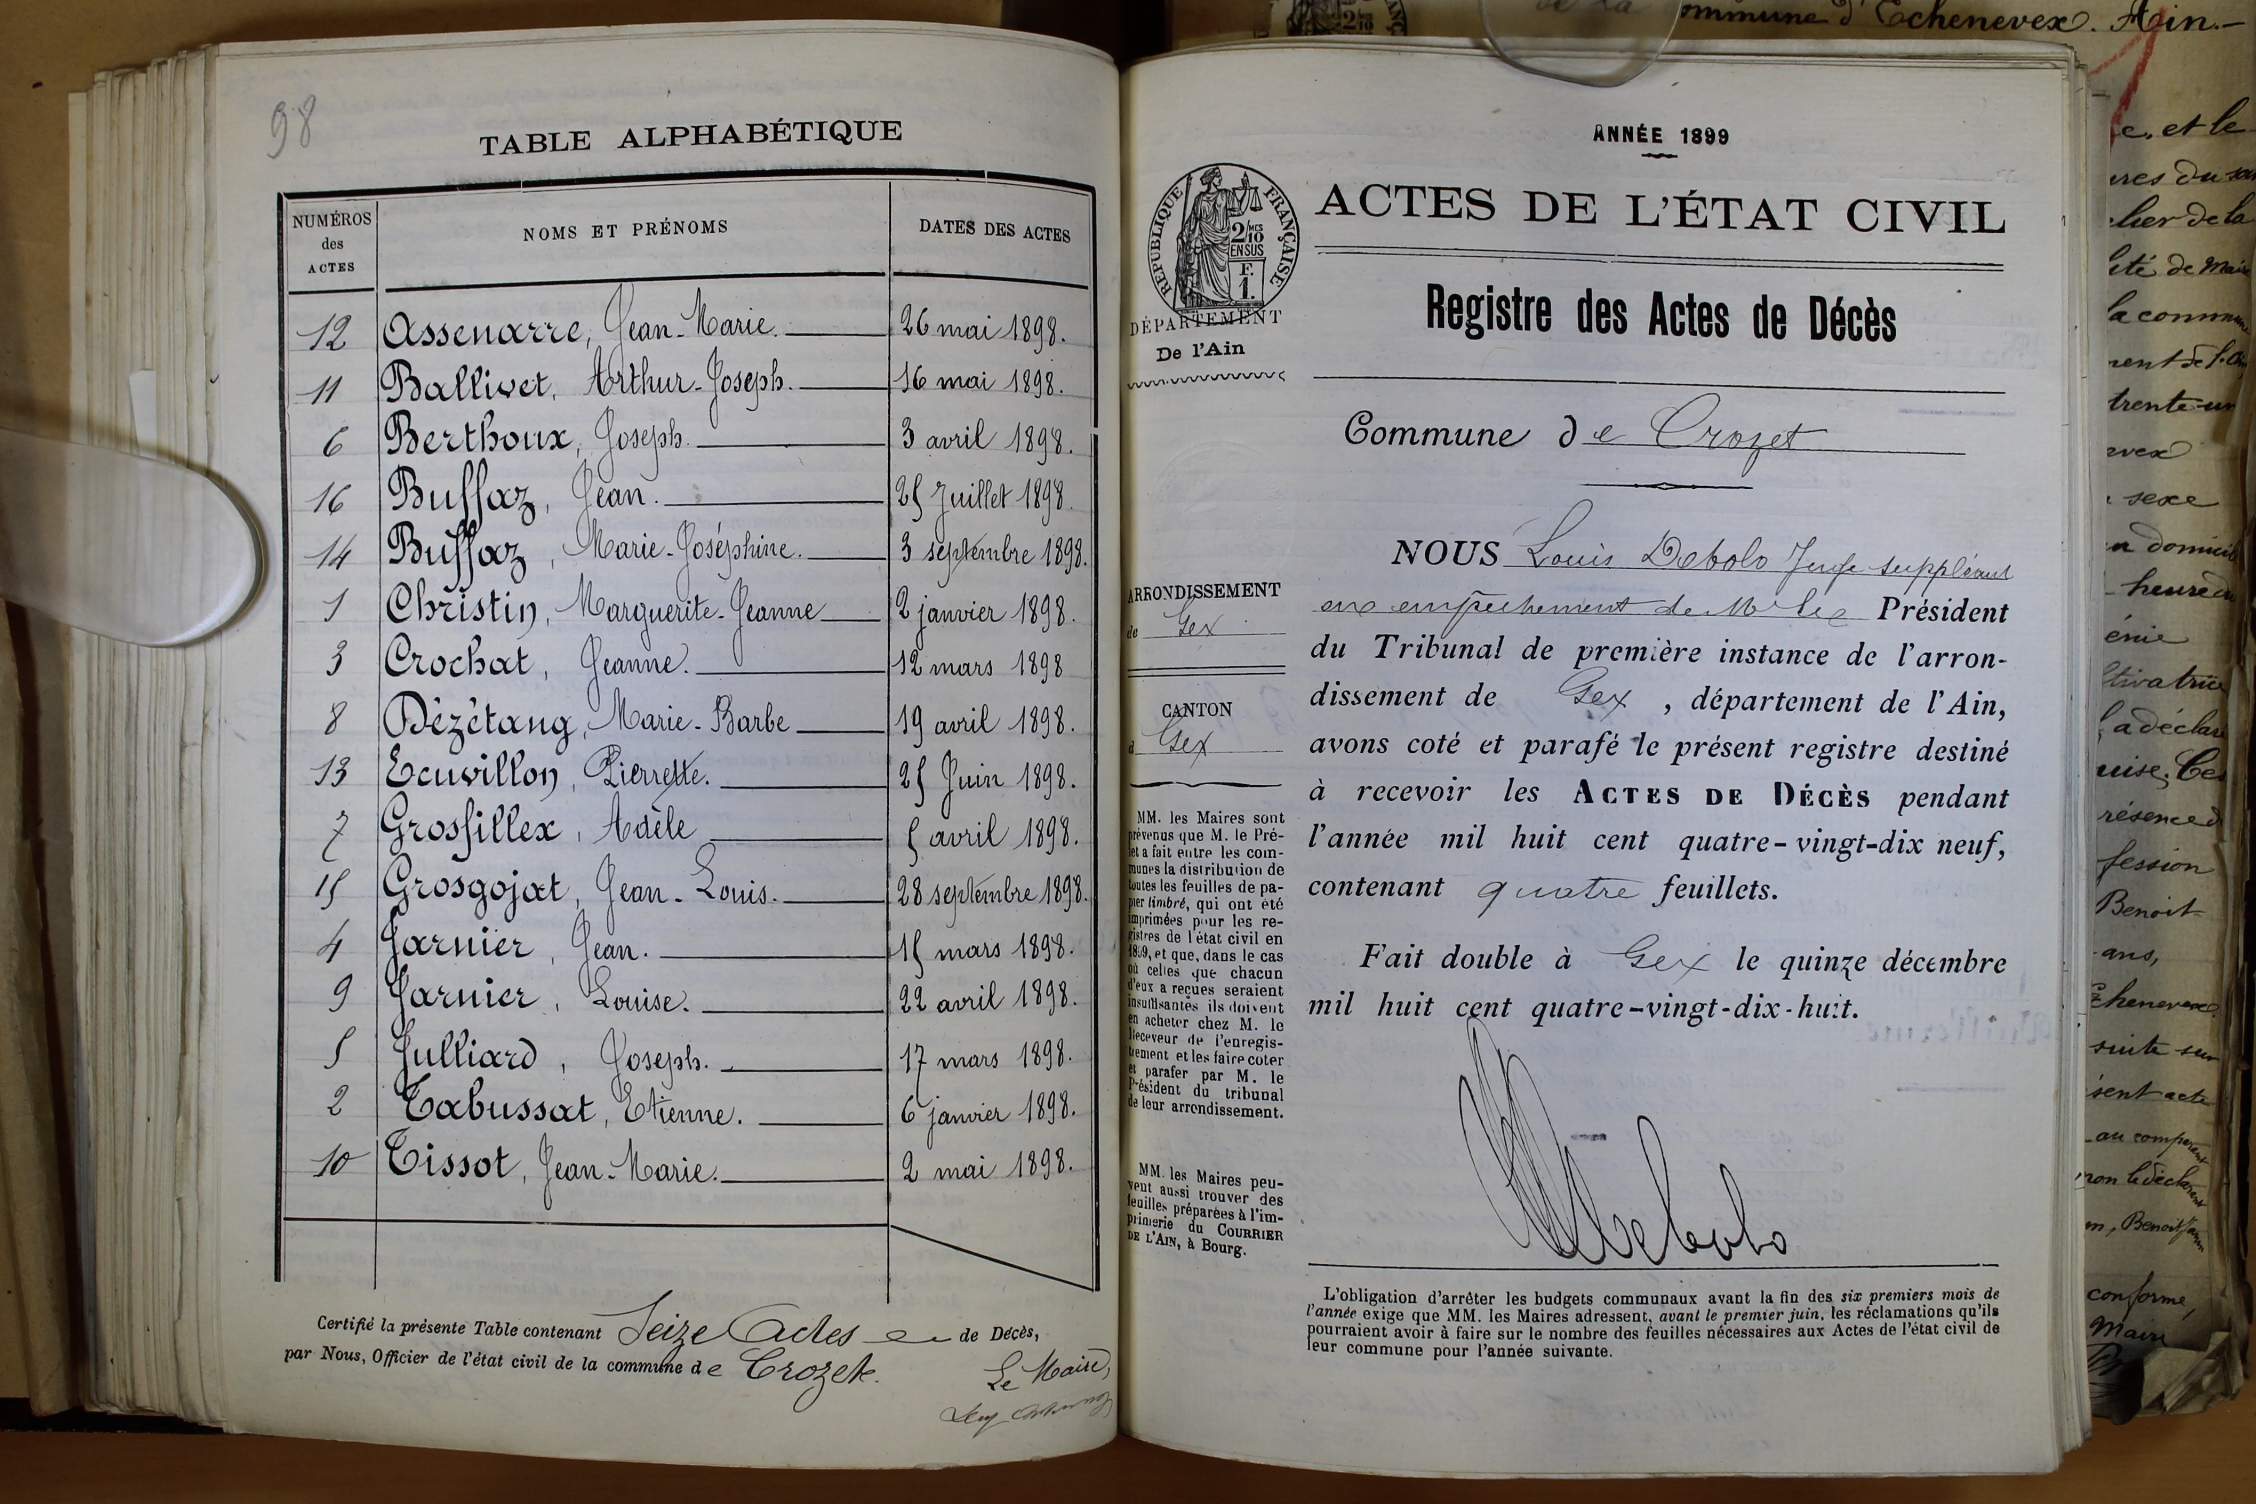 98
TABLE ALPHABÉTIQUE
NUMÉROS des ACTES
NOMS ET PRÉNOMS
DATES DES ACTES
12 Assenarre, Jean-Marie. 26 mai 1898.
11 Ballivet, Arthur-Joseph. 16 mai 1898.
6 Berthoux, Joseph. 3 avril 1898.
16 Buffaz, Jean. 25 Juillet 1898.
14 Buffaz, Marie-Joséphine. 3 septembre 1898.
1 Christin, Marguerite-Jeanne 2 janvier 1898.
3 Crochat, Jeanne. 12 mars 1898
8 Dézétang, Marie-Barbe 19 avril 1898.
13 Ecuvillon, Pierrette. 25 Juin 1898.
7 Grosfillex, Adèle 5 avril 1898.
15 Grosgojat, Jean-Louis. 28 septembre 1898.
4 Jarnier, Jean. 15 mars 1898.
9 Jarnier, Louise. 22 avril 1898.
5 Julliard, Joseph. 17 mars 1898.
2 Tabussat, Etienne. 6 janvier 1898.
10 Tissot, Jean-Marie. 2 mai 1898.
Certifié la présente Table contenant Seize Actes de Décès,
par Nous, Officier de l'état civil de la commune de Crozet.
Le Maire,
ANNÉE 1899
RÉPUBLIQUE FRANÇAISE
2/10 MES
EN SUS
F.
1.
ACTES DE L'ÉTAT CIVIL
DÉPARTEMENT
De l'Ain
Registre des Actes de Décès
Commune de Crozet
ARRONDISSEMENT
de Gex
CANTON
d Gex
MM. les Maires sont
prévenus que M. le Pré-
fet a fait entre les com-
munes la distribution de
toutes les feuilles de pa-
pier timbré, qui ont été
imprimées pour les re-
gistres de l'état civil en
1899, et que, dans le cas
où celles que chacun
d'eux a reçues seraient
insuffisantes ils doivent
en acheter chez M. le
Receveur de l'enregis-
trement et les faire coter
et parafer par M. le
Président du tribunal
de leur arrondissement.
MM. les Maires peu-
vent aussi trouver des
feuilles préparées à l'im-
primerie du COURRIER
DE L'AIN, à Bourg.
NOUS Louis Debolo Juge suppléant
en empêchement de Mr le Président
du Tribunal de première instance de l'arron-
dissement de Gex, département de l'Ain,
avons coté et parafé le présent registre destiné
à recevoir les ACTES DE DÉCÈS pendant
l'année mil huit cent quatre-vingt-dix neuf,
contenant quatre feuillets.
Fait double à Gex le quinze décembre
mil huit cent quatre-vingt-dix-huit.
Debolo
L'obligation d'arrêter les budgets communaux avant la fin des six premiers mois de
l'année exige que MM. les Maires adressent, avant le premier juin, les réclamations qu'ils
pourraient avoir à faire sur le nombre des feuilles nécessaires aux Actes de l'état civil de
leur commune pour l'année suivante.
de la Commune d'Echenevex. Ain.
e, et le
de la
de Maire
la commune
trente-un
sexe
domicile
heure du
énie
a déclaré
fession
Benoit
ans,
suite sur
sent acte
au comparant
non le déclarant
conforme,
Maire